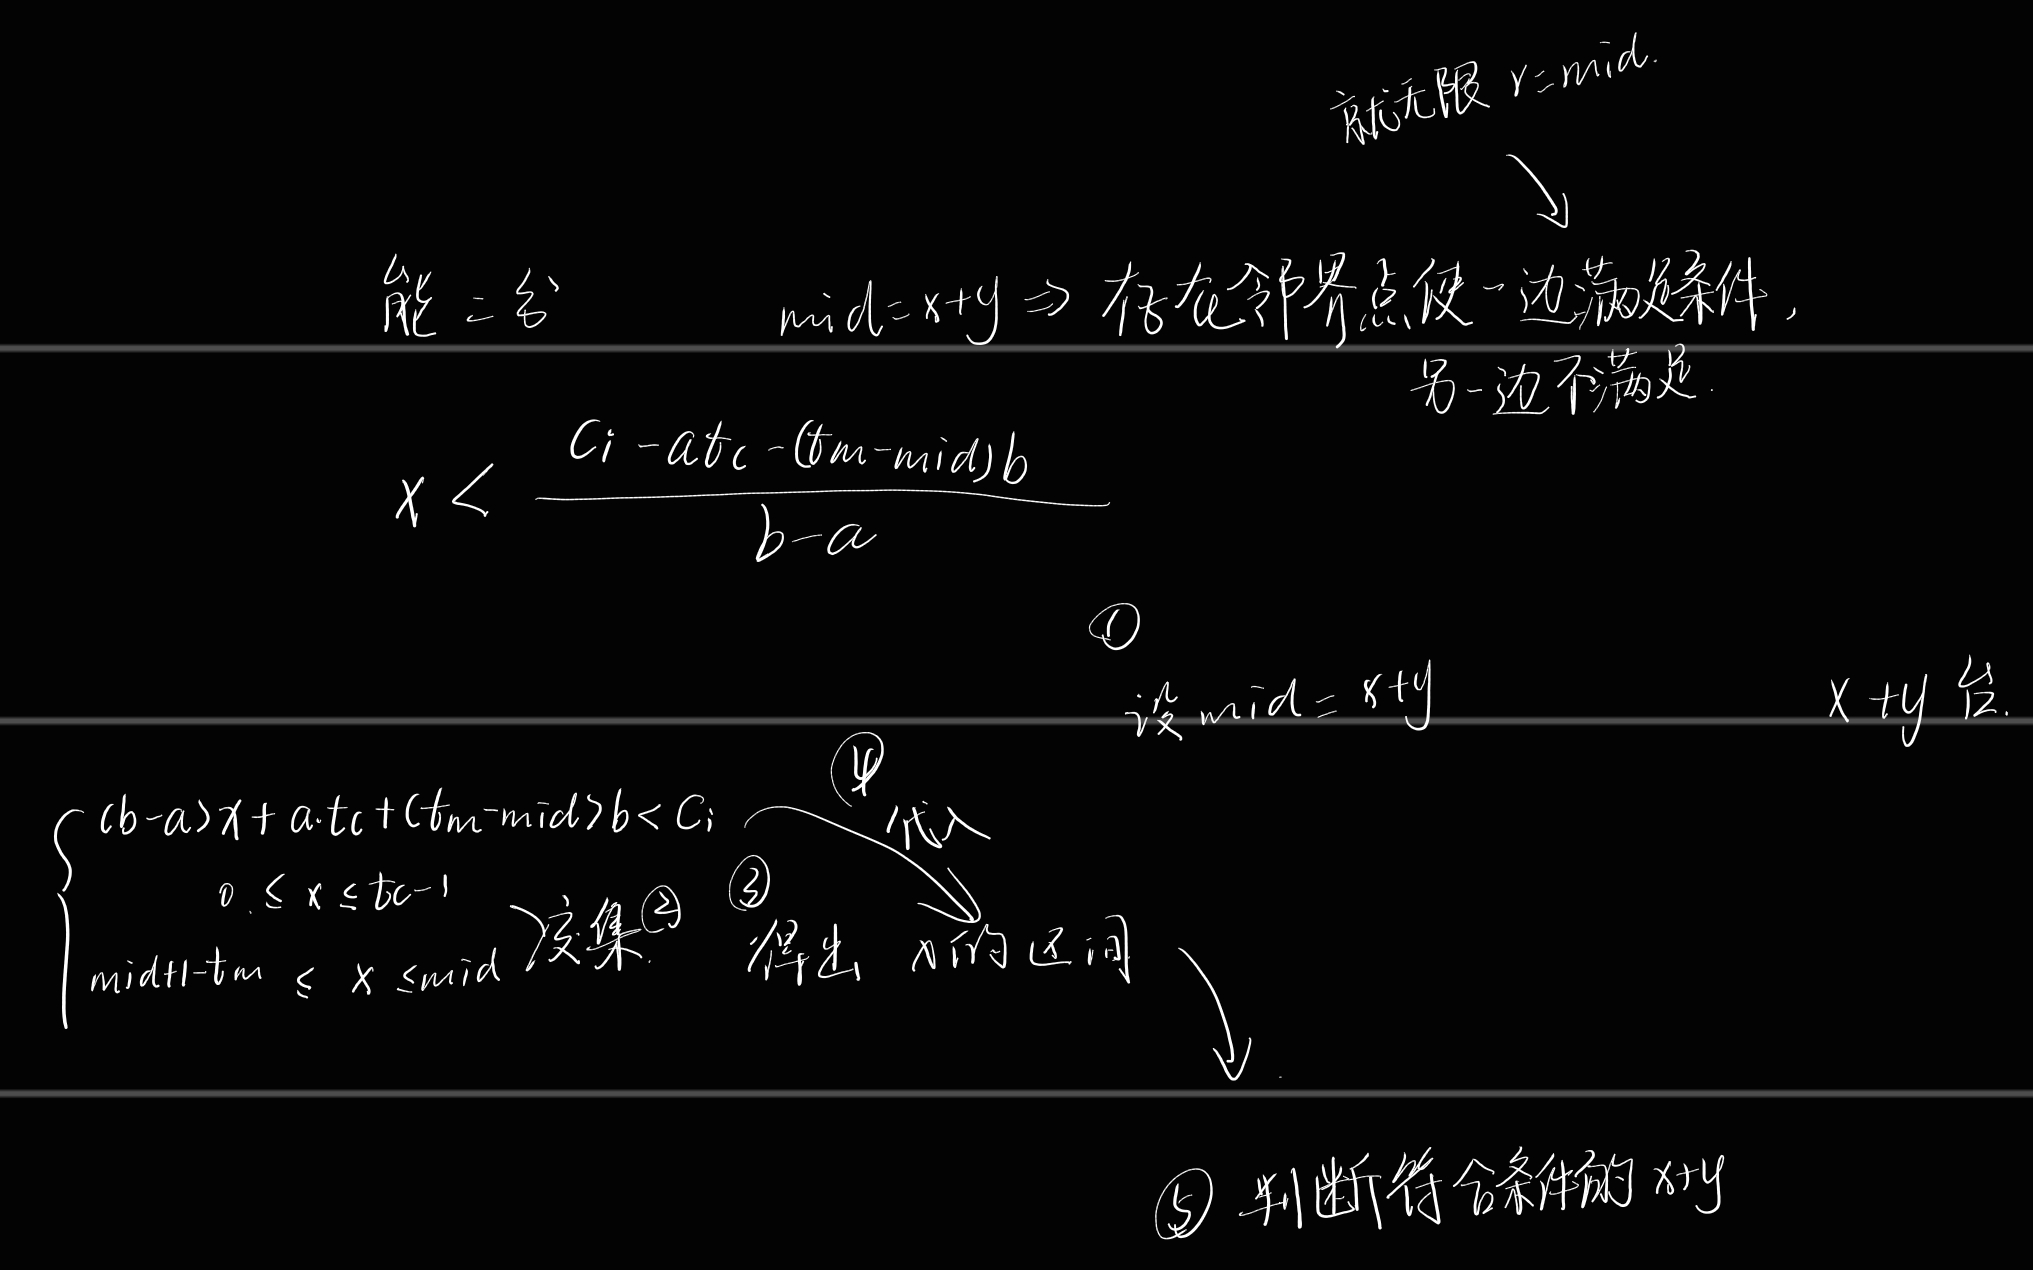 就无限 r=mid.
能二分 mid=x+y⇒存在邻界点使一边满足条件,
另一边不满足.
x < \frac{Ci-atc-(tm-mid)b}{b-a}
①
设mid=x+y x+y 台.
④
(b-a)x+a·tc+(tm-mid)b<Ci 代入
0≤x≤tc-1
mid+1-tm≤x≤mid 交集② ③得出 x的区间
⑤ 判断符合条件的 x+y